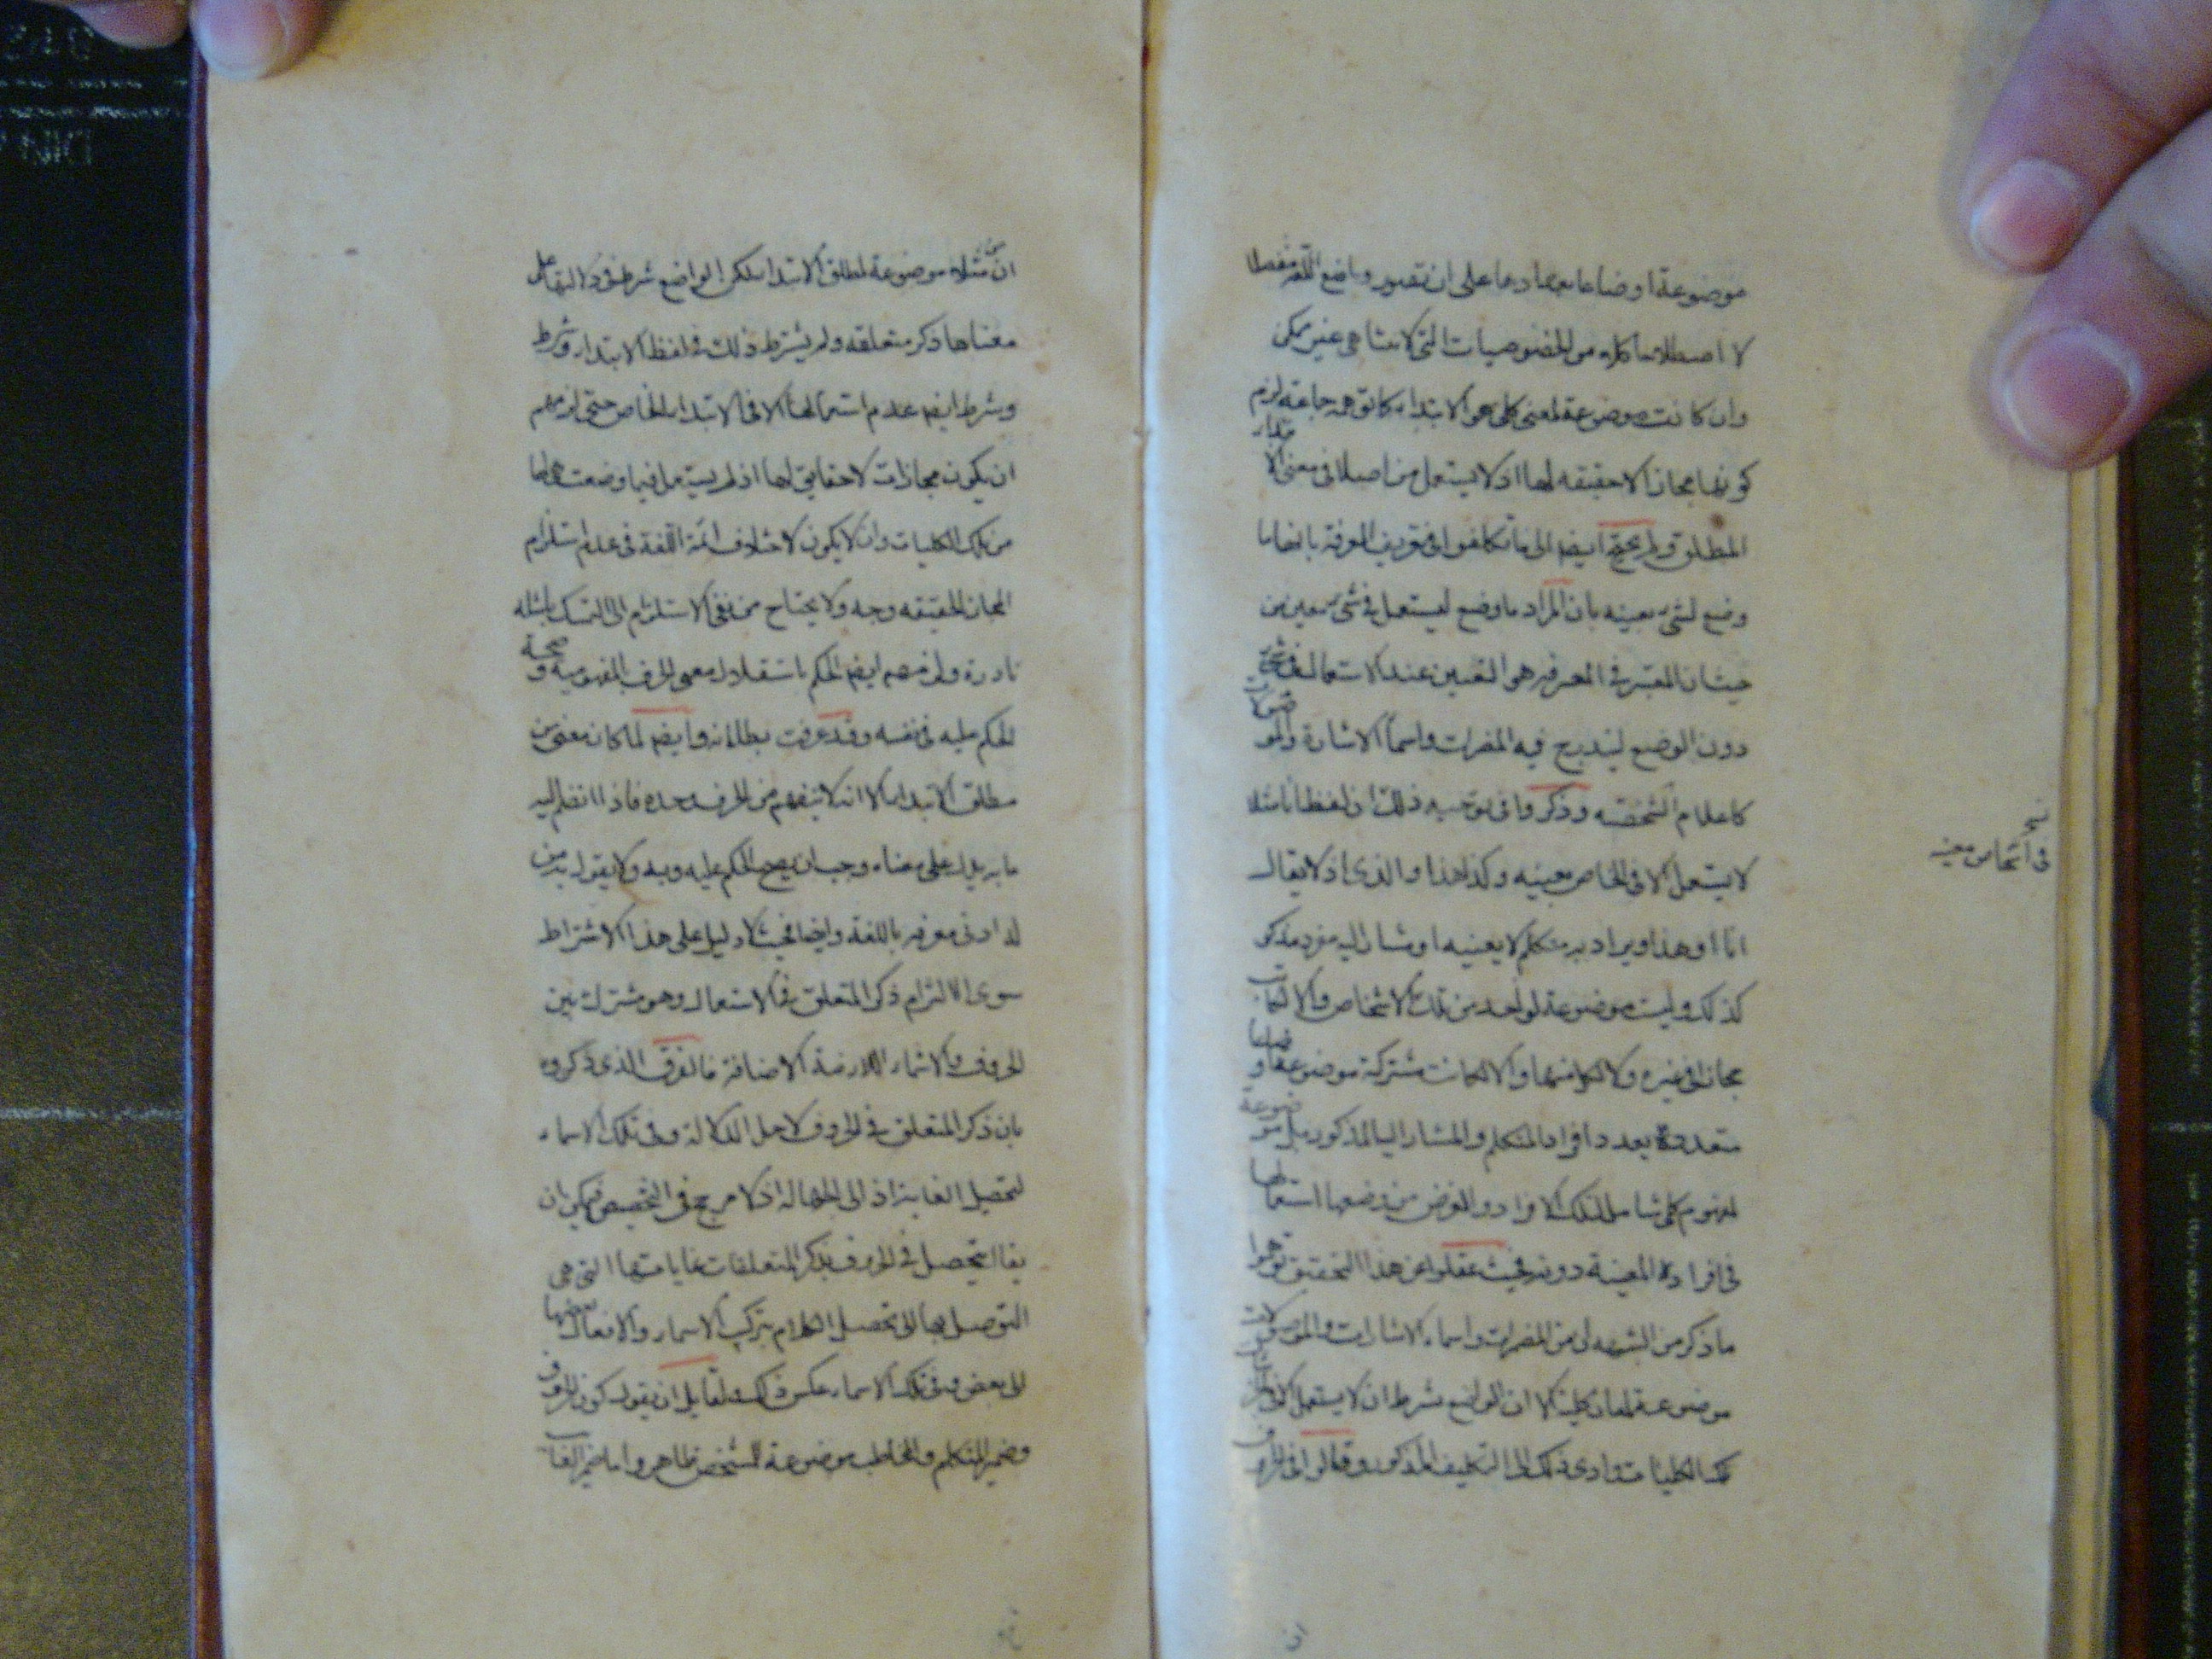 موضوعة اوضاعا بعدادها على ان تصور واضع اللغه مفصلا
لا اصطلاحا كله من الخصوصيات التى لا تتناهى غير ممكن
وان كانت موضوعة لمعنى كلى هو الابتداء كما توهمه جماعة لزم
كونها مجازا لا حقيقه لها اذ لا يستعمل من اصلا فى معنى الابتداء
المطلق ولم يحتج ايضم الى ما تكلفوا فى تعريف المعرفة بانها ما
وضع لشىء بعينه بان المراد ما وضع ليستعمل فى شىء معين من
حيث ان المعتبر فى المعرفه هو التعيين عند الاستعمال
دون الوضع ليندرج فيه المضمرات واسماء الاشارة والموصولات
كاعلام الشخصيه وذكروا فى توجيه ذلك ان لفظ انا مثلا
لا يستعمل الا فى اشخاص معينه وكذا هذا والذى اذ لا يقال
انا او هذا ويراد به متكلم لا بعينه او مشار اليه مفرد مذكر
كذلك وليست موضوعة لواحد من تلك الاشخاص والا لكانت
مجازا فى غيره ولا لكل منها والا لكانت مشتركة موضوعة اوضاعا
متعددة بعدد افراد المتكلم والمشار اليه المذكور بل موضوعة
لمفهوم كلى شامل لتلك الافراد والغرض من وضعها استعمالها
فى افراده المعينة دونه فحيث غفلوا عن هذا التحقيق توهموا
ما ذكر من الشبهه فى المضمرات واسماء الاشارات والموصولات
موضوعة لمعان كلية الا ان الواضع شرط ان لا يستعمل الا فى
تلك الكليات فادى ذلك الى التكليف المذكور وقالوا فى الحروف
نسخه
فى اشخاص معينه
ان من مثلا موضوعة لمطلق الابتداء لكن الواضع شرط فى دلالتها على
معناها ذكر متعلقه ولم يشترط ذلك فى لفظ الابتداء وشرط
وشرط ايضم عدم استعمالها الا فى الابتداء الخاص حتى لزمهم
ان يكون مجازات لا حقايق لها اذ لم يستعمل فيما وضعت هى لها
من تلك الكليات وان لا يكون لاختلاف ائمة اللغة فى عدم استلزام
المجاز الحقيقه وجه ولا يحتاج من نفى الاستلزام الى التمسك بامثله
نادرة ولزمهم ايضم الحكم باستقلال معنى الحرف بالمفهومية وصحة
الحكم عليه فى نفسه وقد عرفت بطلانه وايضم لما كان معنى من
مطلق الابتداء الا انه لا يفهم من الحرف وحده فاذا انضم اليه
ما به يدل على معناه وجب ان يصح الحكم عليه وبه ولا يقول به من
له ادنى معرفه باللغة وايضا فحيث لا دليل على هذا الاشتراط
سوى الالتزام ذكر المتعلق فى الاستعمال وهو مشترك بين
الحروف والاسماء اللازمة الاضافة فالفرق الذى ذكروه
بان ذكر المتعلق فى الحروف لاجل الدلالة وفى تلك الاسماء
لتحصيل الغاية اذ الى الجهالة اذ لا مرجح فى التخصيص فيمكن ان
يقال تحصل فى الحروف بذكر المتعلقات غاياتها التى هى
التوصل بها الى تحصيل الكلام بتركيب الاسماء والافعال بعضها
الى بعض وفى تلك الاسماء عكس ذلك ولقايل ان يقول كون الحروف
وضمير المتكلم والمخاطب موضوعة للتشخص ظاهر واما ضمير الغائب